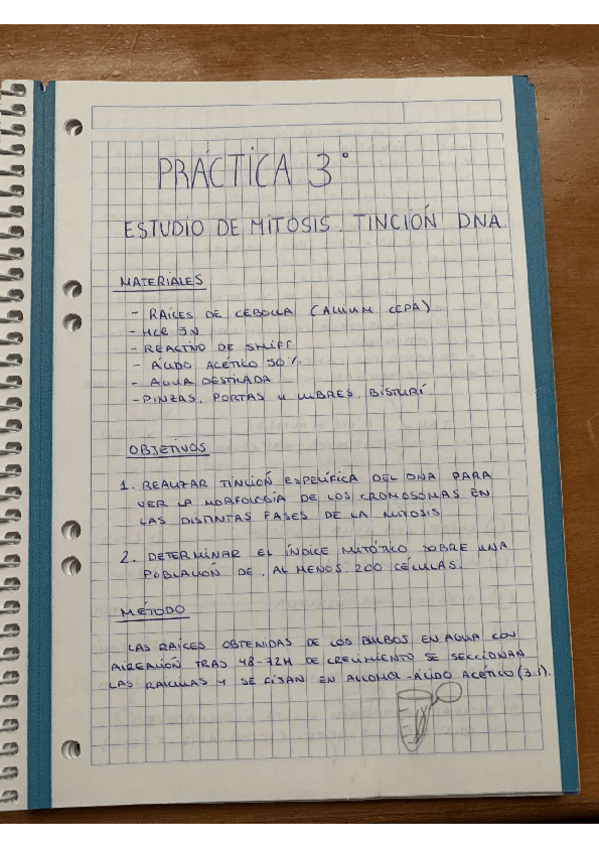 PRÁCTICA 3º
ESTUDIO DE MITOSIS. TINCIÓN DNA
MATERIALES
- RAÍCES DE CEBOLLA (ALLIUM CEPA)
- HCl 5N
- REACTIVO DE SHIFF
- ÁCIDO ACÉTICO 50%
- AGUA DESTILADA
- PINZAS, PORTAS Y CUBRES, BISTURÍ
OBJETIVOS
1. REALIZAR TINCIÓN ESPECÍFICA DEL DNA PARA
VER LA MORFOLOGÍA DE LOS CROMOSOMAS EN
LAS DISTINTAS FASES DE LA MITOSIS
2. DETERMINAR EL ÍNDICE MITÓTICO SOBRE UNA
POBLACIÓN DE, AL MENOS 200 CÉLULAS.
MÉTODO
LAS RAÍCES OBTENIDAS DE LOS BULBOS EN AGUA CON
AIREACIÓN TRAS 48-72H DE CRECIMIENTO SE SECCIONAN
LAS RAICILLAS Y SE FIJAN EN ALCOHOL-ÁCIDO ACÉTICO (3:1).